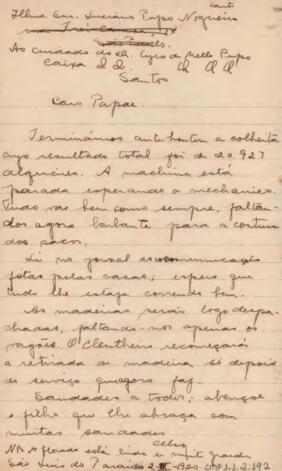 Illmo. Snr. Luciano Pupo Nogueira
São Paulo.
Ao cuidado do Dr. Cyro de Mello Pupo
Caixa 22.
Santos
Caro Papae.
Terminámos ante hontem a colheita
cujo resultado total foi de 20.927
alqueires. A machina está
parada esperando o mechanico.
Tudo vae bem como sempre, faltan-
do agora barbante para a costura
dos saccos.
Li no jornal as communicações
feitas pelas casas; espero que
tudo lhe esteja correndo bem.
As madeiras serão logo despa-
chadas, faltando-nos apenas os
vagões. O Eleutherio recomeçará
a retirada de madeira só depois
do serviço que agora faz.
Saudades a todos; abençoe
o filho que lhe abraça com
muitas saudades
Celso
NB. a florada está linda e muito grande